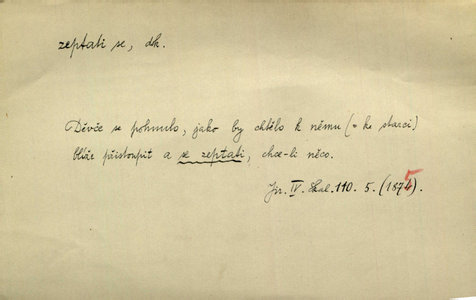 zeptati se, dk.
Děvče se pohnulo, jako by chtělo k němu (= ke starci)
blíže přistoupit a se zeptati, chce-li něco.
Jir. IV. Skal. 110. 5. (1875).